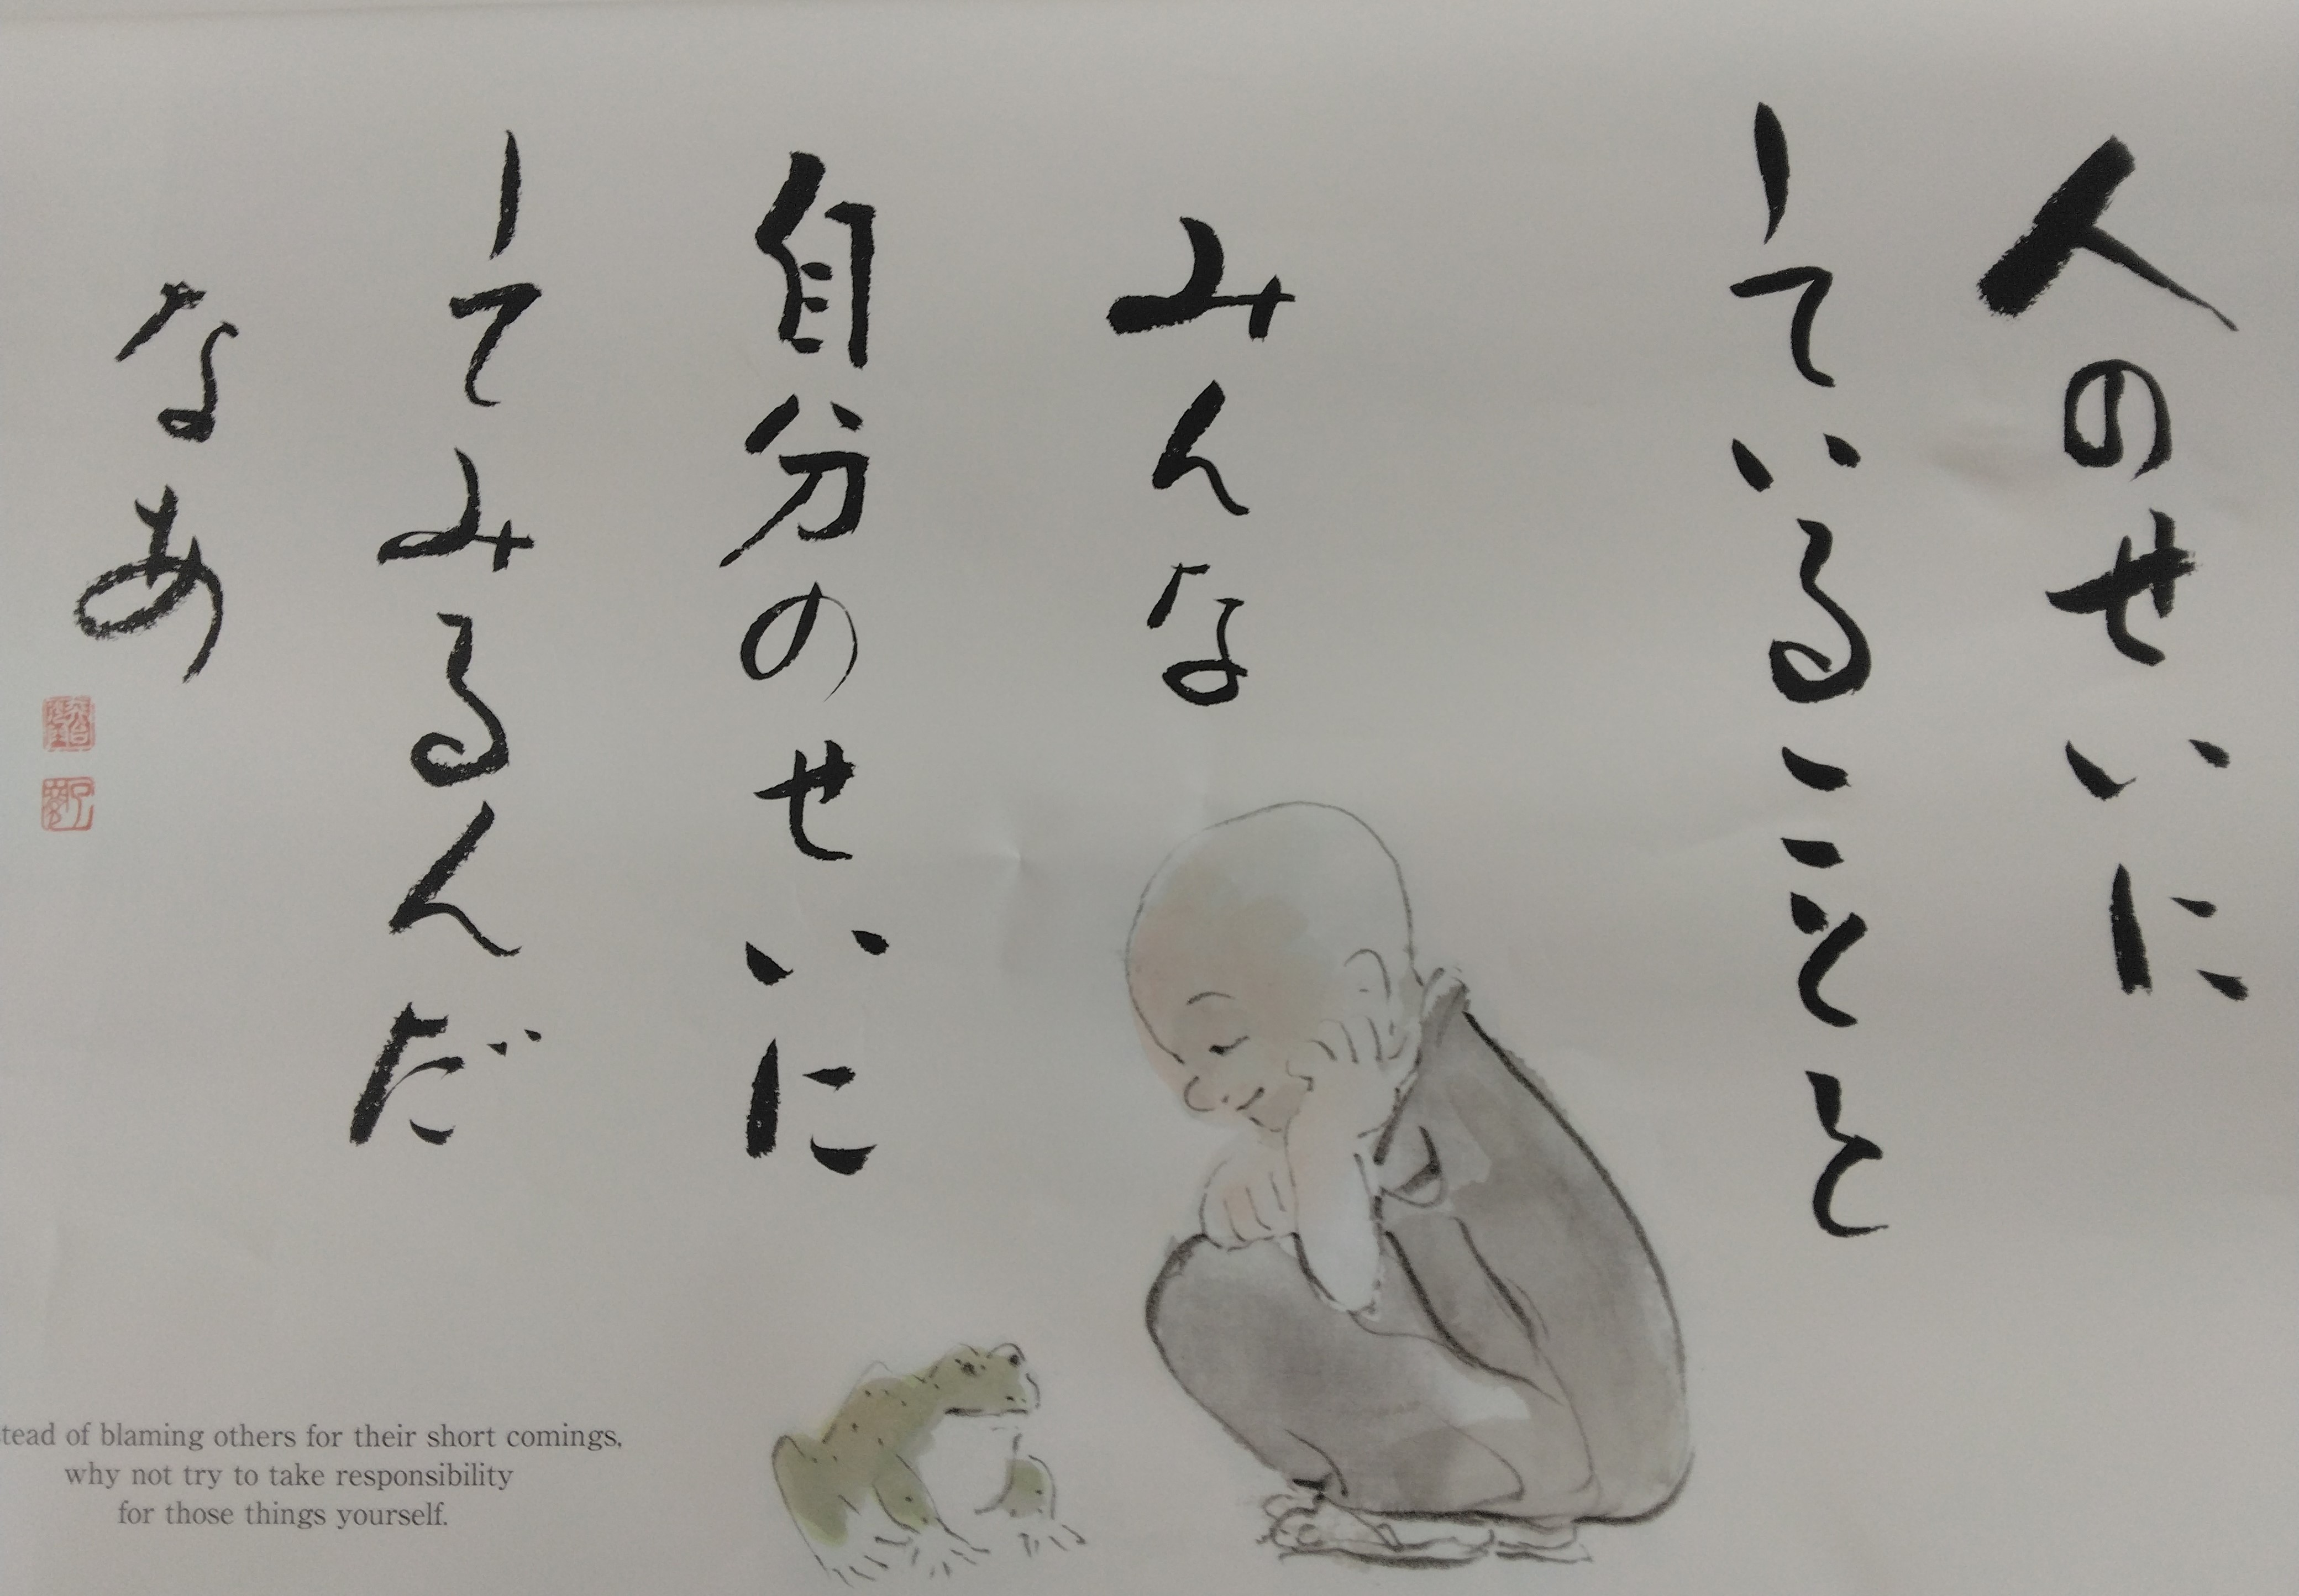 人のせいに
していることを
みんな
自分のせいに
してみるんだ
なあ
stead of blaming others for their short comings,
why not try to take responsibility
for those things yourself.